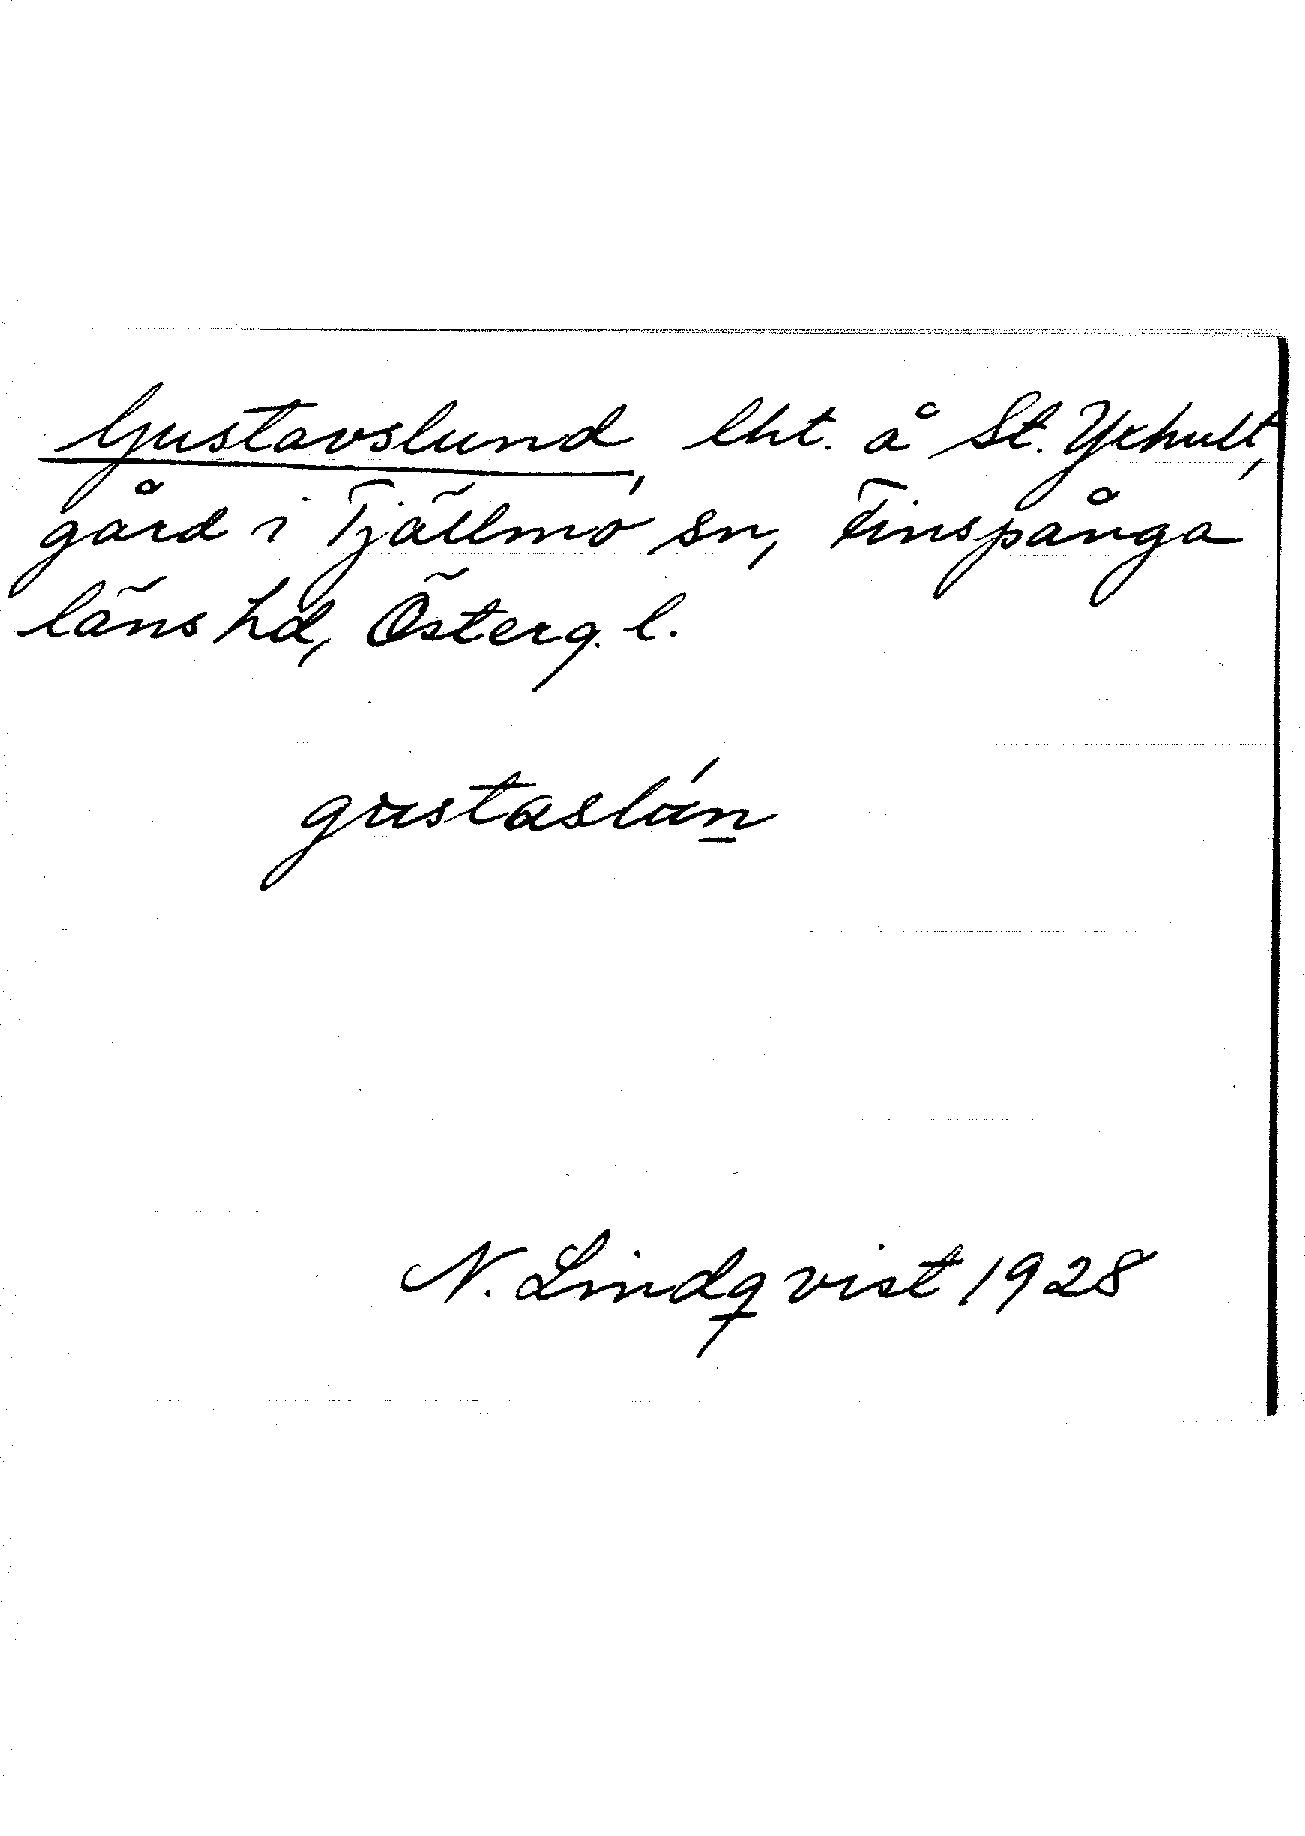 Gustavslund, lht. å St. Yxhult,
gård i Tjällmo sn, Finspånga
läns hd, Österg. l.
gustaslún
N. Lindqvist 1928